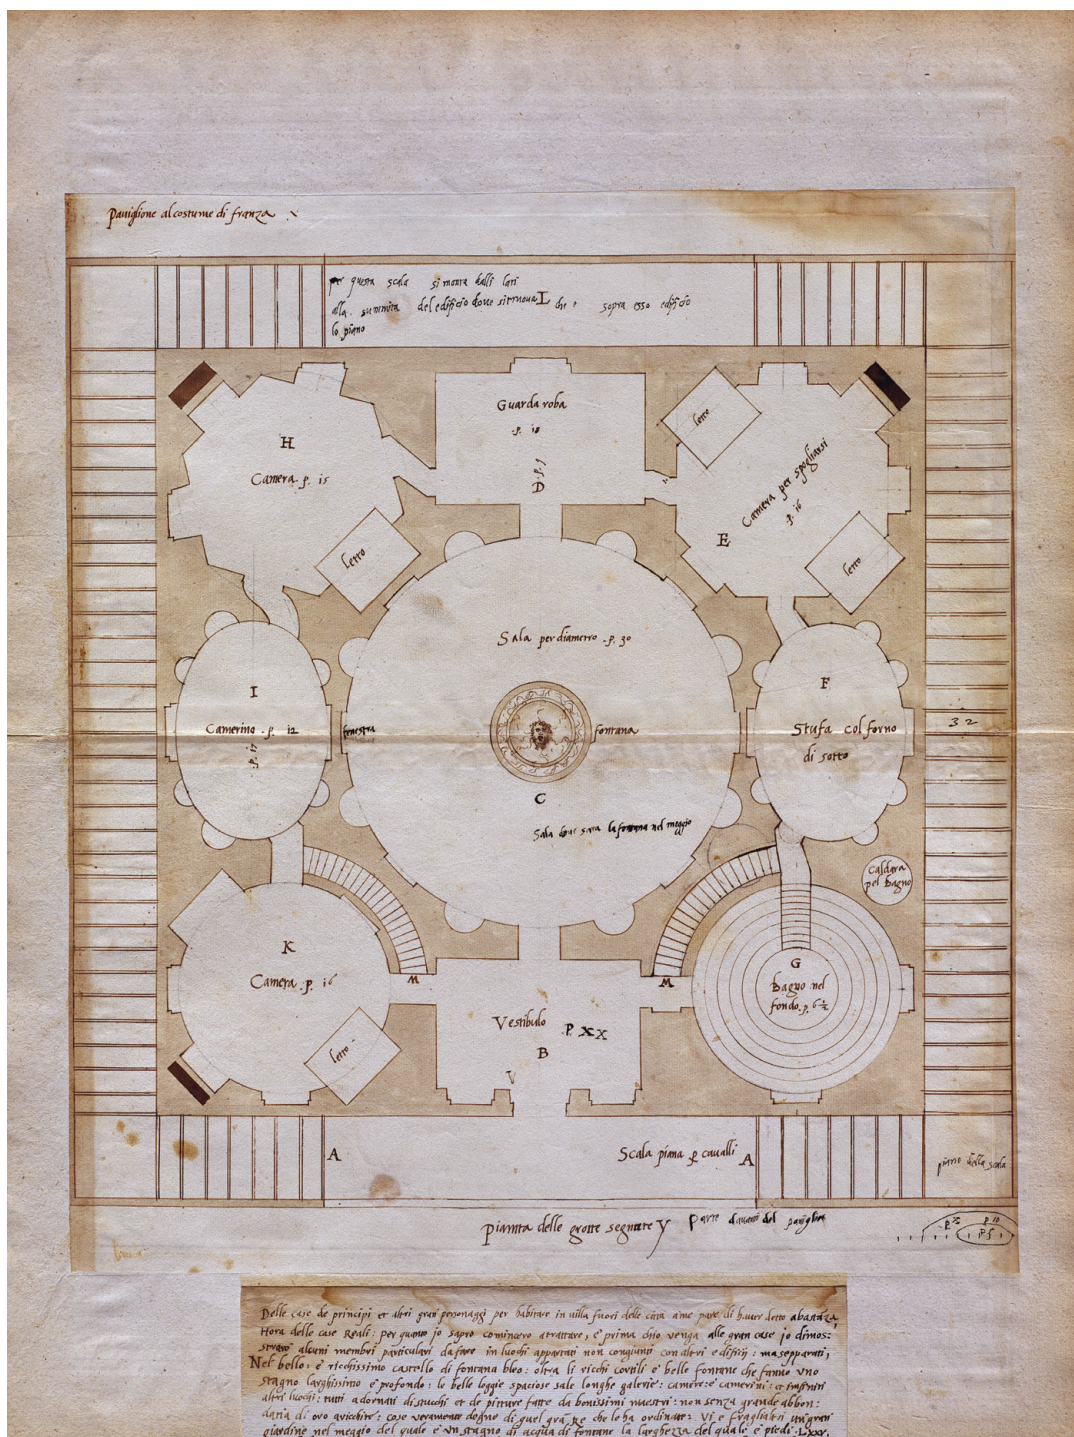 Paviglione al costume di franza
per questa scala si monta dalli lati
alla summita del edificio dove si trova L che e sopra esso edificio
lo piano
Guarda roba
.p. 18
.p. 9
D
H
Camera .p. 15
letto
letto
Camera per spogliarsi
.p. 16
E
letto
Sala per diametro .p. 30
I
Camerino .p. 12
.p. 17
fenestra
fontana
F
Stufa col forno
di sotto
32
C
Sala dove sara la fontana nel meggio
Caldara
pel bagno
K
Camera .p. 16
letto
M
M
G
bagno nel
fondo .p. 6 ½
Vestibulo P. XX
B
A
Scala piana p cavalli A
piano della scala
pianta delle grotte segnate Y
parte davanti del paviglione
Delle case de principi et altri gran personaggi per habitare in villa fuori delle citta a me pare di haver detto abastãza,
Hora delle case Reali: per quanto jo sapro comincero a trattare, e prima chio venga alle gran case jo dimos:
straro alcuni membri particulari da fare in luochi appartati non congiunti con altri edifitij: ma sepparati,
Nel bello: e richissimo castello di fontana bleo: oltra li ricchi cortili e belle fontane che fanno uno
stagno larghissimo e profondo: le belle loggie spaciose sale longhe galerie: camere: e camerini: et infiniti
altri luochi: tutti adornati di stucchi et de pitture fatte da bonissimi maestri: non senza grande abbon:
datia di oro arichite: cose veramente degne di quel grã Re che le ha ordinate: Vi e fra gli altri un gran
giardine nel meggio del quale e un stagno di acqua di fontane la larghezza del quale e piedi .LXXV.